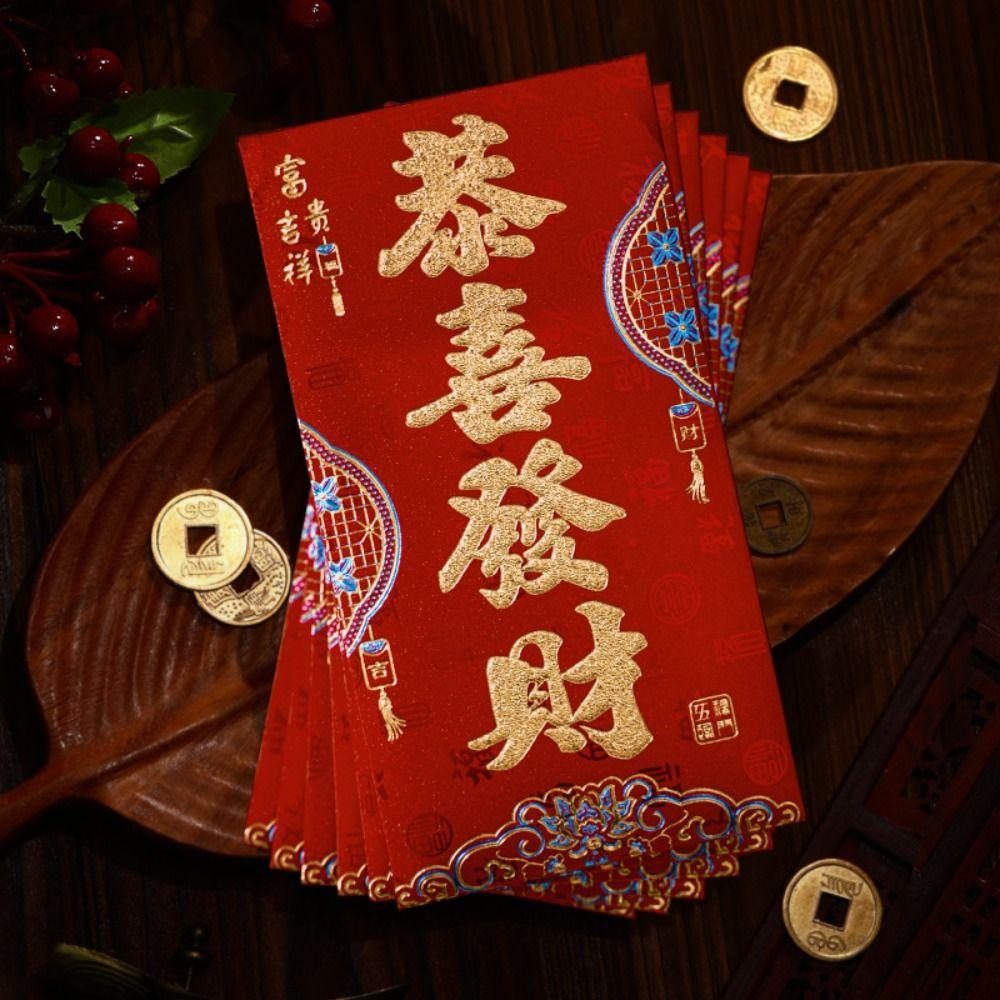 恭喜發財
富貴
吉祥
财
吉
五福
臨門